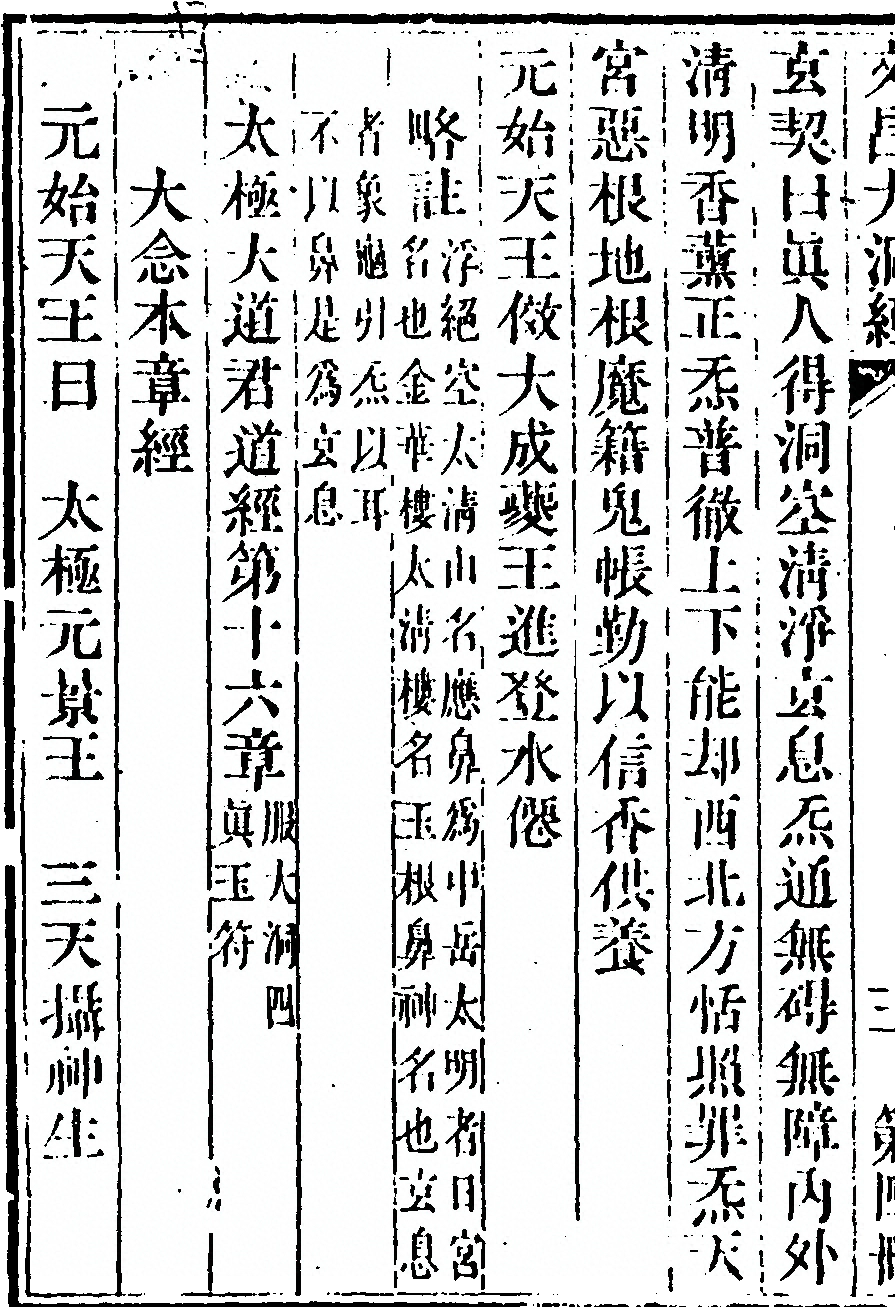 文昌大洞經 三 第四冊
玄契曰眞人得洞空清淨玄息炁通無碍無障內外
清明香薰正炁普徹上下能却西北方恬照罪炁天
宮惡根地根魔籍鬼帳勤以信香供養
元始天王倣大成夔王進登水僊
略註浮絕空太清山名應鼻爲中岳太明者日宮
名也金華樓太清樓名玉根鼻神名也玄息
者象龜引炁以耳
不以鼻是爲玄息
太極大道君道經第十六章服大洞四
眞玉符
大念本章經
元始天王曰 太極元景王 三天攝神生